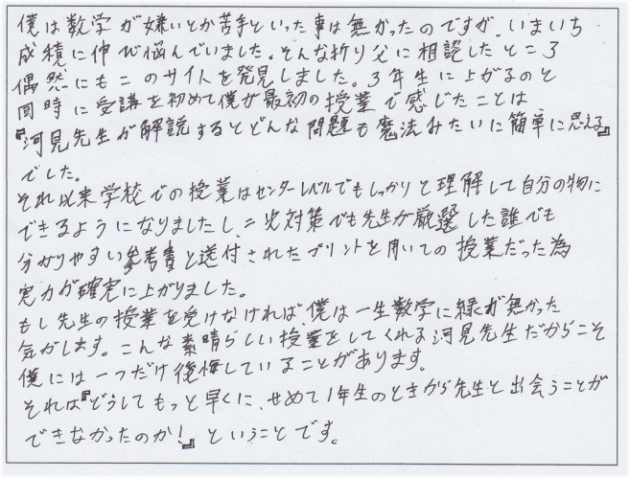 僕は数学が嫌いとか苦手といった事は無かったのですが、いまいち
成積に伸び悩んでいました。そんな折り父に相談したところ
偶然にもこのサイトを発見しました。3年生に上がるのと
同時に受講を初めて僕が最初の授業で感じたことは
『河見先生が解説するとどんな問題も魔法みたいに簡単に思える』
でした。
それ以来学校での授業はセンターレベルでもしっかりと理解して自分の物に
できるようになりましたし、二次対策でも先生が厳選した誰でも
分かりやすい参考書と送付されたプリントを用いての授業だった為
実力が確実に上がりました。
もし先生の授業を受けなければ、僕は一生数学に縁が無かった
気がします。こんな素晴らしい授業をしてくれる河見先生だからこそ
僕には一つだけ後悔していることがあります。
それは『どうしてもっと早くに、せめて1年生のときから先生と出会うことが
できなかったのか!』ということです。